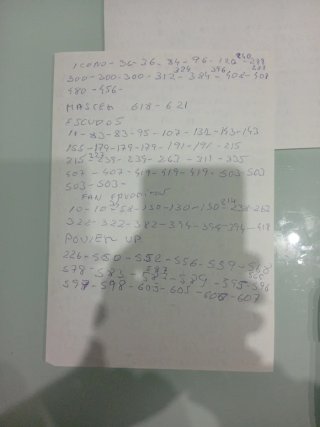 ICONO - 36-36-84-96-120-240-288
300-300-300-312-324-384-396-408-408
480-456-
MASTER 618-621
ESCUDOS
11-83-83-95-107-131-143-143
155-179-179-179-191-191-215
215-227-239-239-263-311-335
407-407-419-419-419-503-503
503-503-
FAN FAVORITAS
10-10-58-130-130-130-214-238-262
322-322-382-394-394-394-418
POWER UP
226-550-552-556-559-568
578-583-587-589-595-596
597-598-603-605-606-607